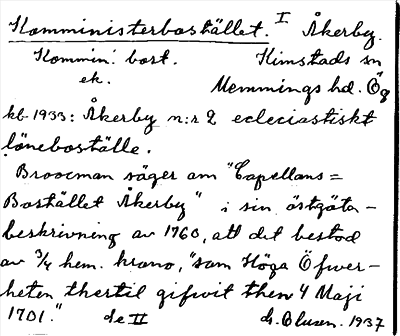 Komministerbostället. I Åkerby.
Kommin. bost. Kimstads sn
ek. Memmings hd. Ög
kb 1933: Åkerby n:r 2 eclesiastiskt
löneboställe.
Broocman säger om "Capellans=
Bostället Åkerby" i sin östgöta-
beskrivning av 1760, att det bestod
av 3/4 hem. krono, "som Höga Öfwer-
heten thertil gifwit then 4 Maji
1701." de II G. Olusen. 1937